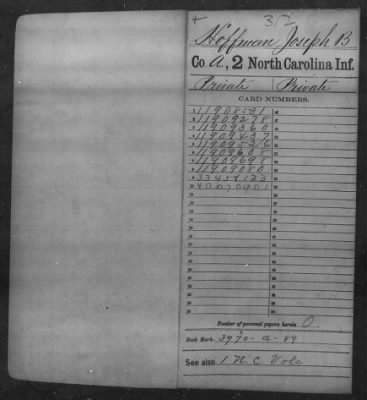 + 312
Hoffman, Joseph B
Co. A, 2 North Carolina Inf.
Private Private
CARD NUMBERS.
1 11908591
2 11909278
3 11909360
4 11909437
5 11909526
6 11909608
7 11909698
8 11909080
9 33454133
10 40070901
Number of personal papers herein 0
Book Mark: 3970-a-89
See also 1 N.C. Vols